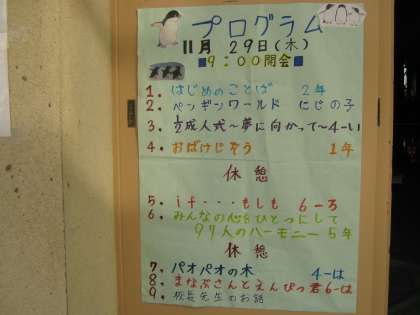 プログラム
11月 29日(木)
9:00開会
1. はじめのことば 2年
2. ペンギンワールド にじの子
3. ½成人式～夢に向かって～ 4-い
4. おばけじぞう 1年
休憩
5. if・・・もしも 6-ろ
6. みんなの心をひとつにして
97人のハーモニー 5年
休憩
7. パオパオの木 4-は
8. まなぶさんとえんぴつ君 6-は
9. 校長先生のお話